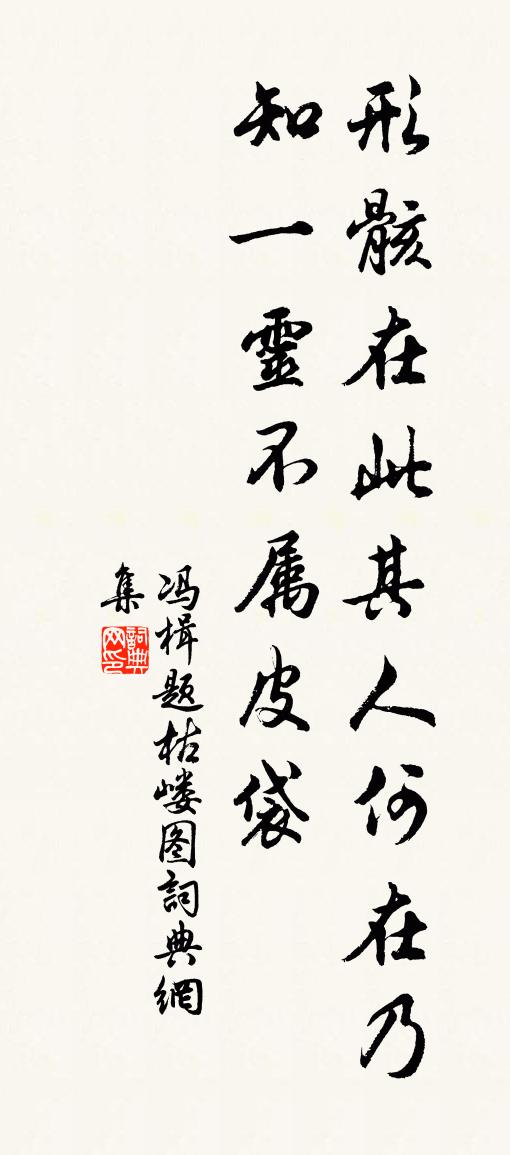 形骸在此其人何在乃
知一靈不属皮袋
冯楫题枯嵝图詞典網
集
詞典
网印